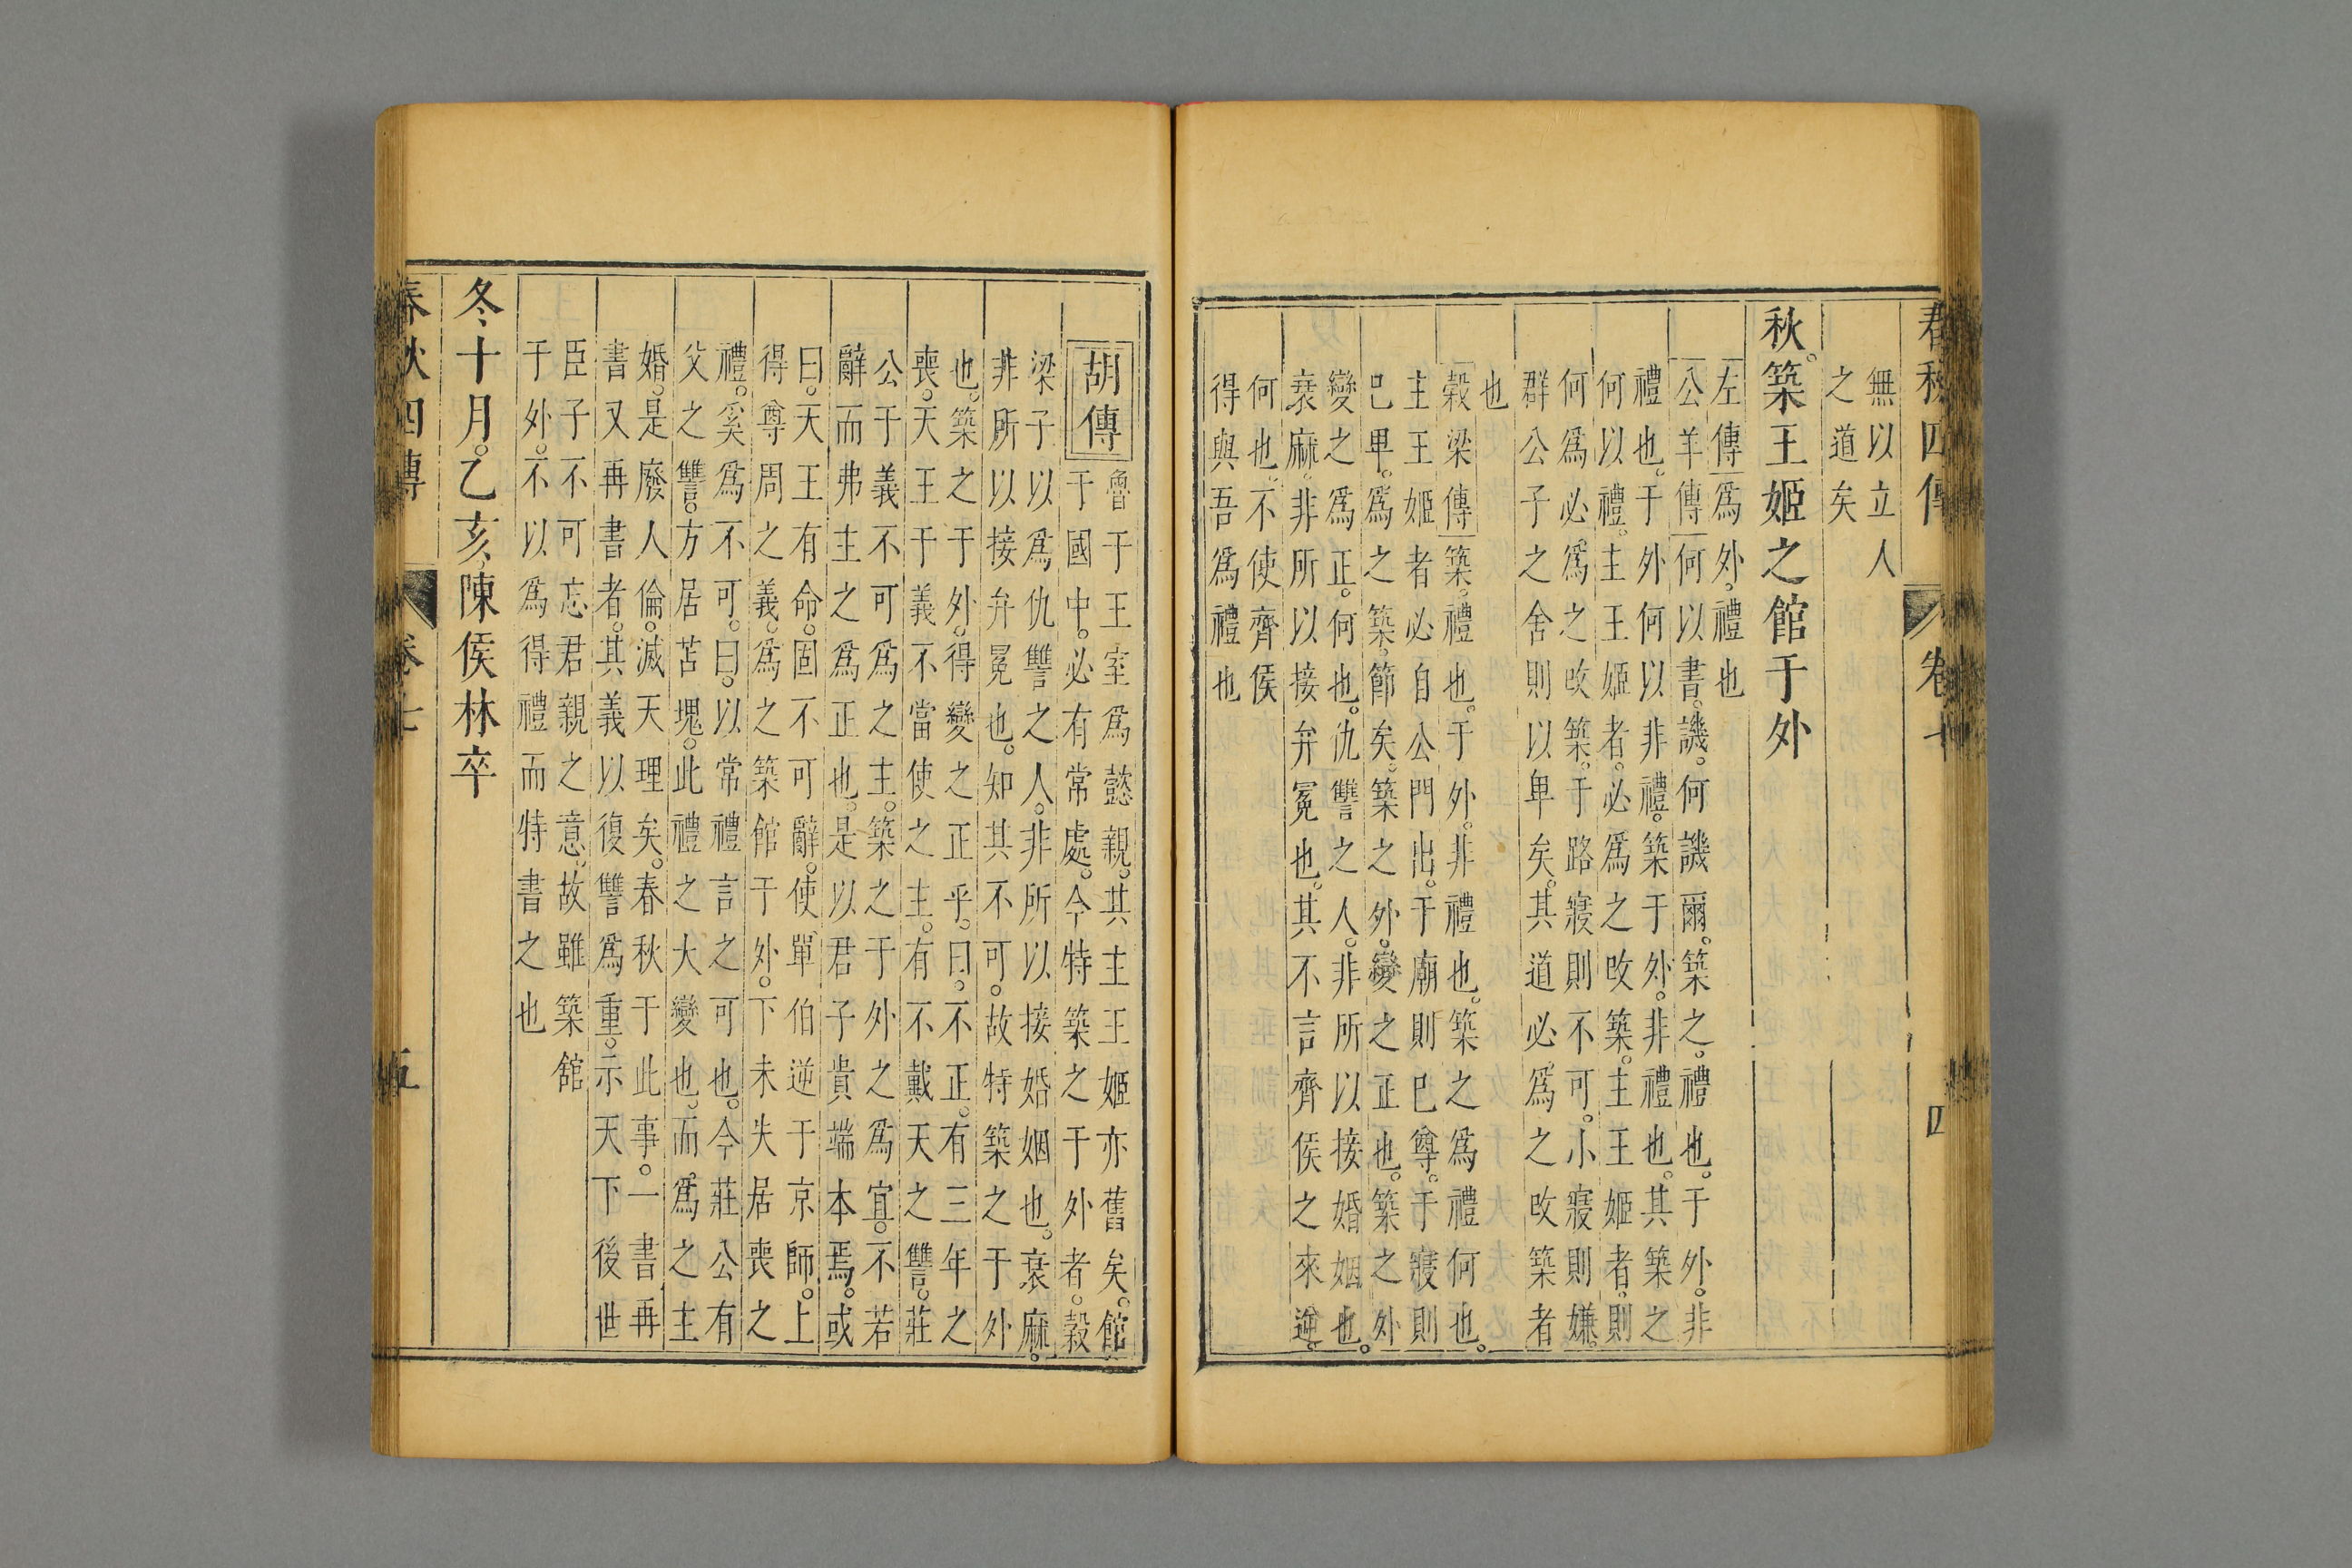 春秋四傳 卷七 四
無以立人
之道矣
秋。築王姬之館于外
左傳爲外。禮也
公羊傳何以書。譏。何譏爾。築之。禮也。于外。非
禮也。于外何以非禮。築于外。非禮也。其築之
何以禮。主王姬者。必爲之改築。主王姬者。則
何爲必爲之改築。于路寢則不可。小寢則嫌。
群公子之舍則以卑矣。其道必爲之改築者
也
穀梁傳築。禮也。于外。非禮也。築之爲禮何也。
主王姬者必自公門出。于廟則已尊。于寢則
已卑。爲之築。節矣。築之外。變之正也。築之外
變之爲正。何也。仇讐之人。非所以接婚姻也。
衰麻。非所以接弁冕也。其不言齊侯之來逆。
何也。不使齊侯
得與吾爲禮也
胡傳
魯于王室爲懿親。其主王姬亦舊矣。館。
于國中。必有常處。今特築之于外者。穀
梁子以爲仇讐之人。非所以接婚姻也。衰麻。
非所以接弁冕也。知其不可。故特築之于外
也。築之于外。得變之正乎。曰。不正。有三年之
喪。天王于義不當使之主。有不戴天之讐。莊
公于義不可爲之主。築之于外之爲宜。不若
辭而弗主之爲正也。是以君子貴端本焉。或
曰。天王有命。固不可辭。使單伯逆于京師。上
得尊周之義。爲之築館于外。下未失居喪之
禮。奚爲不可。曰。以常禮言之可也。今莊公有
父之讐。方居苫塊。此禮之大變也。而爲之主
婚。是廢人倫。滅天理矣。春秋于此事。一書再
書又再書者。其義以復讐爲重。示天下後世
臣子不可忘君親之意。故雖築館
于外。不以爲得禮而特書之也
冬十月。乙亥、陳侯林卒
春秋四傳 卷七 五